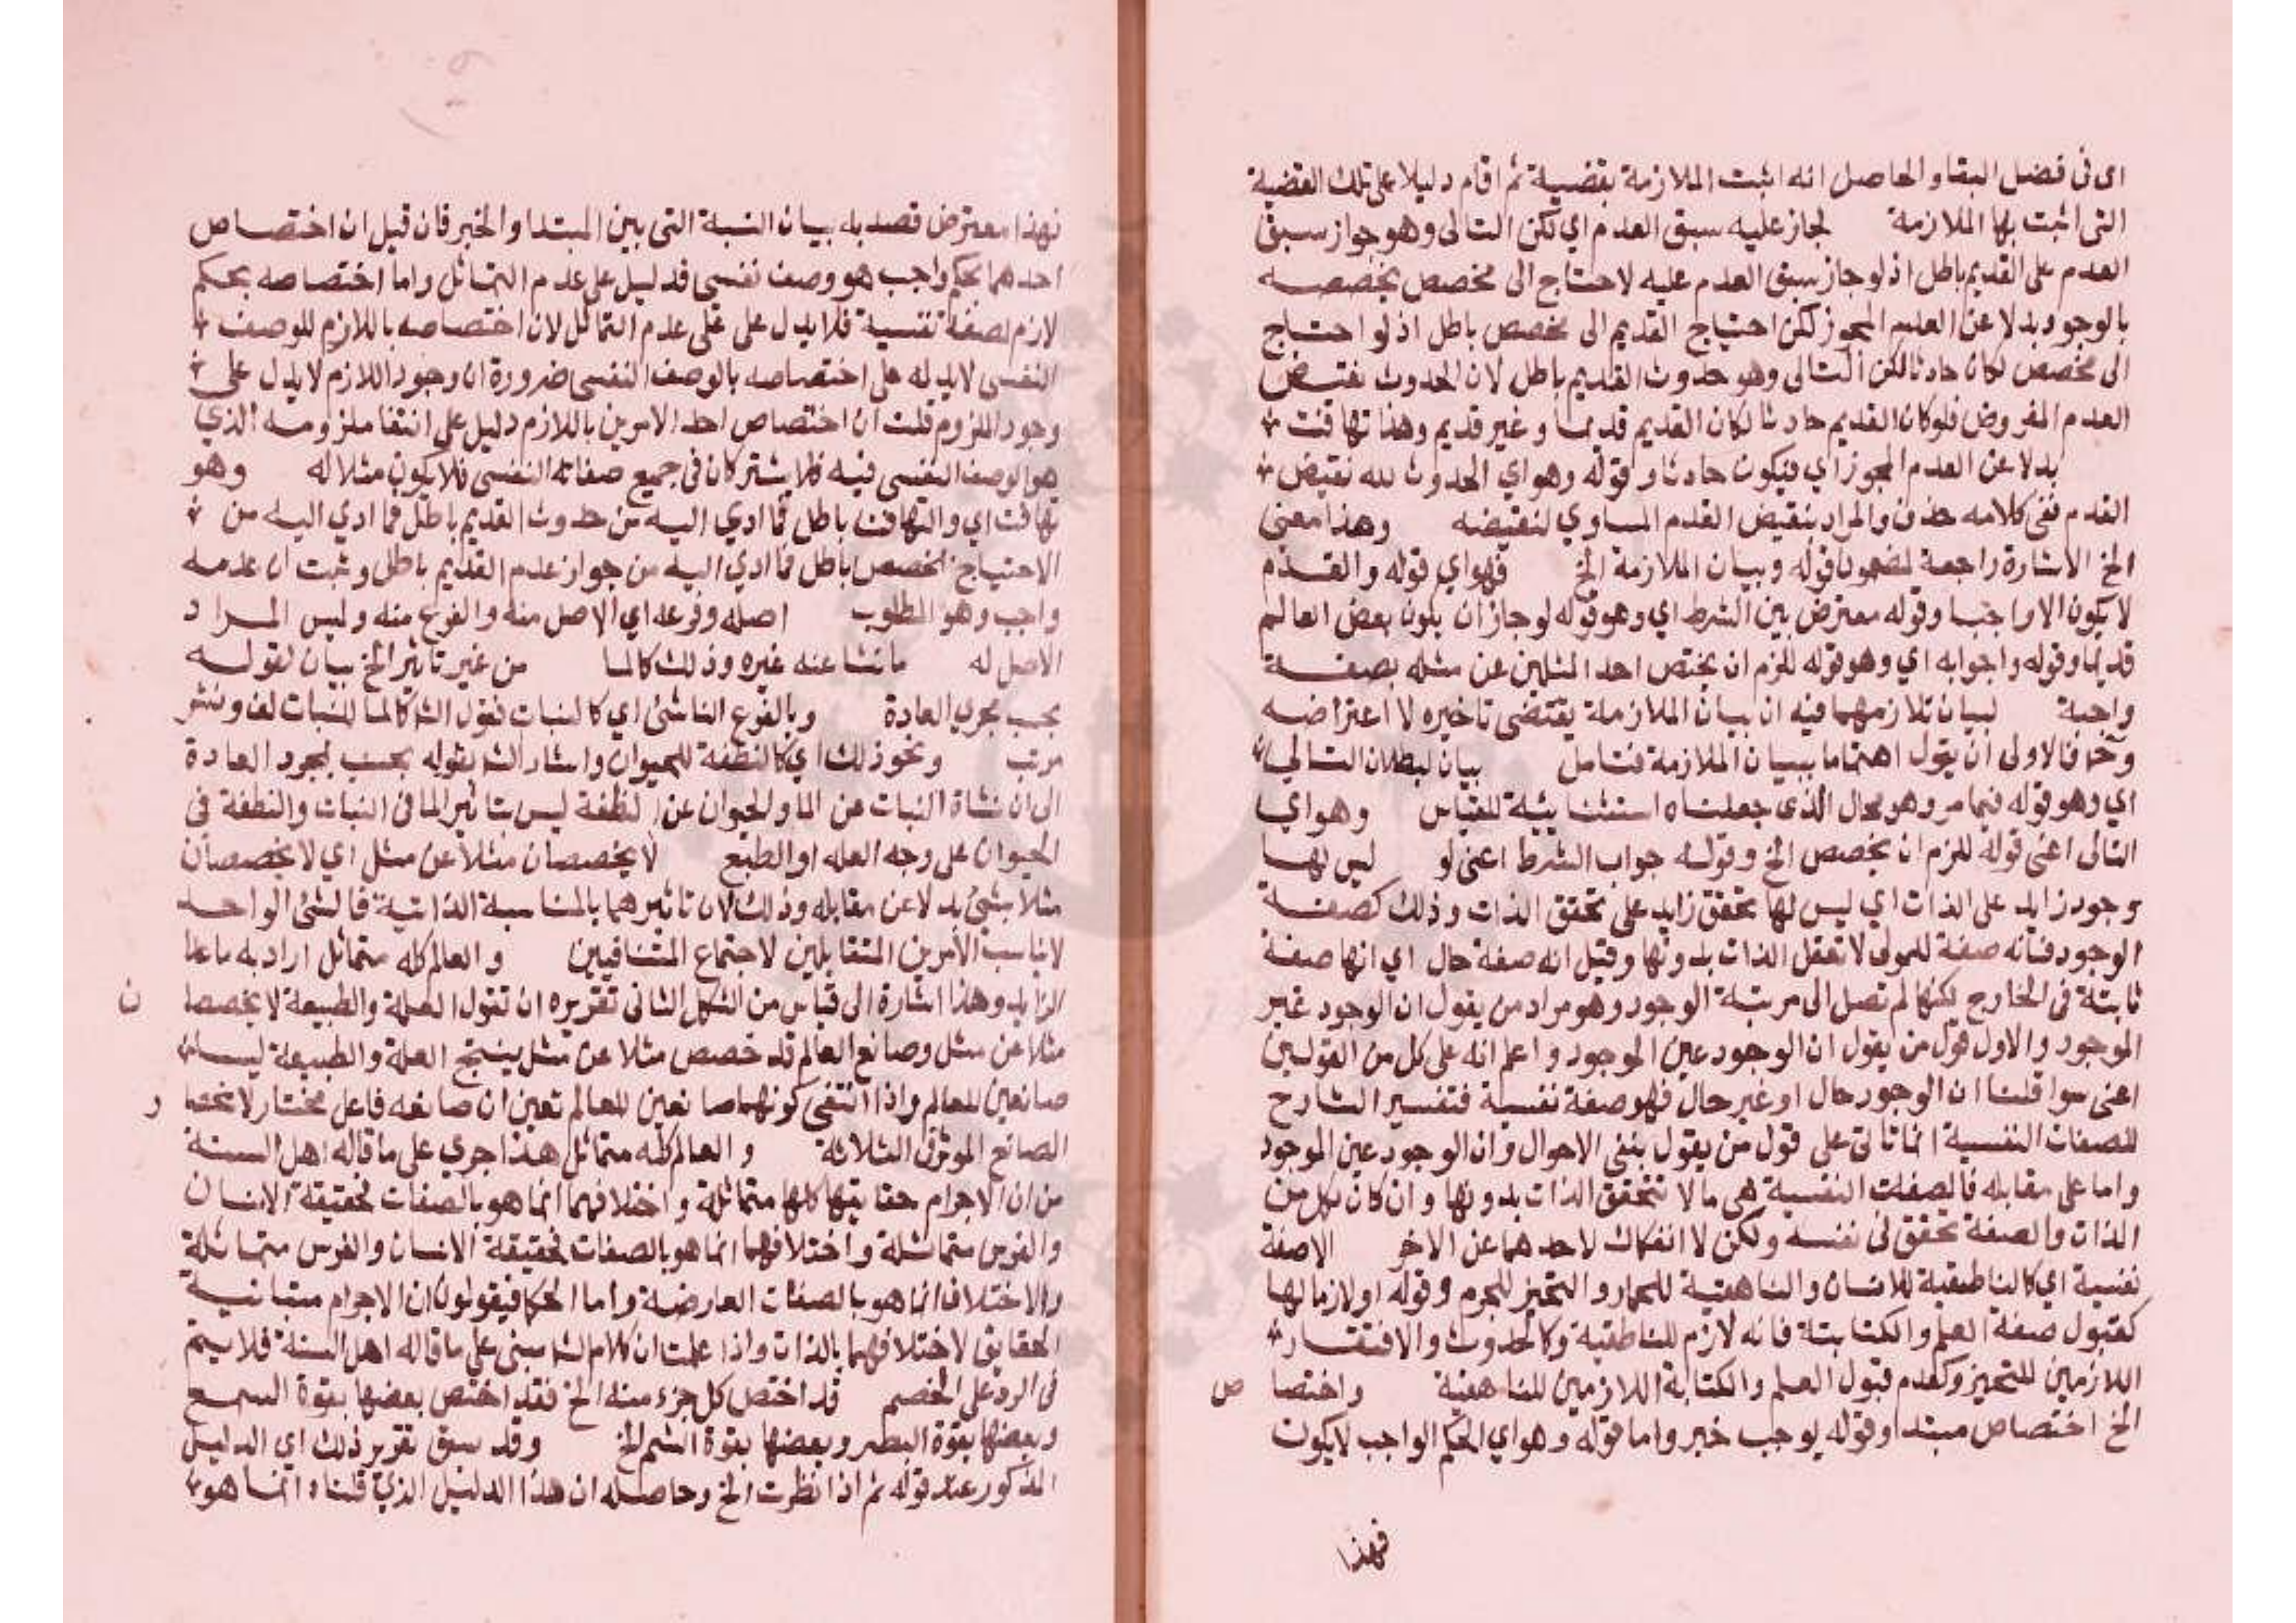 اى فى فصل البقا والحاصل انه اثبت الملازمة بقضية ثم اقام دليلا على تلك القضية
التى اثبت بها الملازمة لجاز عليه سبق العدم اي لكن التالى وهو جواز سبق
العدم على القديم باطل اذ لو جاز سبق العدم عليه لاحتاج الى مخصص يخصصه
بالوجود بدلا عن العدم المجوز لكن احتياج القديم الى مخصص باطل اذ لو احتاج
الى مخصص لكان حادثا لكن التالى وهو حدوث القديم باطل لان الحدوث نقيض
العدم المفروض فلو كان القديم حادثا لكان القديم قديما وغير قديم وهذا تهافت
بدلا عن العدم المجوز اي فيكون حادثا وقوله وهو اي الحدوث لله نقيض
القدم ففى كلامه حذف والمراد بنقيض القدم المساوي لنقيضه وهذا معنى
الخ الاشارة راجعة لمضمون قوله وبيان الملازمة الخ فهو اي قوله والقدم
لا يكون الا واجبا وقوله معترض بين الشرط اي وهو قوله لو جاز ان يكون بعض العالم
قديما وقوله واجوابه اي وهو قوله للزم ان يختص احد المثلين عن مثله بصفة
واجبة لبيان تلازمهما فيه ان بيان الملازمة يقتضى تاخيره لا اعتراضه
وخ فالاولى ان يقول اهتماما ببيان الملازمة فتامل بيان لبطلان التالي
اي وهو قوله فيما مر وهو محال الذى جعلناه استثنائية للقياس وهو اي
التالى اعنى قوله للزم ان يخصص الخ وقوله جواب الشرط اعنى لو ليس لها
وجود زايد على الذات اي ليس لها تحقق زايد على تحقق الذات وذلك كصفة
الوجود فانه صفة للمولى لا تعقل الذات بدونها وقيل انه صفة حال اي انها صفة
ثابتة فى الخارج لكنها لم تصل الى مرتبة الوجود وهو مراد من يقول ان الوجود غير
الموجود والاول قول من يقول ان الوجود عين الموجود واعلم انه على كل من القولين
اعنى سوا قلنا ان الوجود حال او غير حال فهو صفة نفسية فتفسير الشارح
للصفات النفسية انما تاتى على قول من يقول بنفى الاحوال وان الوجود عين الموجود
واما على مقابله فالصفات النفسية هى ما لا تتحقق الذات بدونها وان كان لكل من
الذات والصفة تحقق فى نفسه ولكن لا انفكاك لاحدهما عن الاخر الاصفة
نفسية اي كالناطقية للانسان والناهقية للحمار والتحيز للجرم وقوله او لازما لها
كقبول صفة العلم والكتابة فانه لازم للناطقية وكالحدوث والافتقار
اللازمين للتحيز وكعدم قبول العلم والكتابة اللازمين للناهقية واختصا ص
الخ اختصاص مبتدا وقوله يوجب خبر واما قوله وهو اي الحكم الواجب لا يكون
فهذا
فهذا معترض قصد به بيان النسبة التى بين المبتدا والخبر فان قيل ان اختصاص
احدهما بحكم واجب هو وصف نفسى فدليل على عدم التماثل واما اختصاصه بحكم
لازم لصفة نفسية فلا يدل على على عدم التماثل لان اختصاصه باللازم للوصف
النفسى لا يدل له على اختصاصه بالوصف النفسى ضرورة ان وجود اللازم لا يدل على
وجود الملزوم قلت ان اختصاص احد الامرين باللازم دليل على انتفا ملزومه الذي
هو الوصف النفسى فيه فلا يشتركان فى جميع صفاته النفسى فلا يكون مثلا له وهو
تهافت اي والتهافت باطل فما ادي اليه من حدوث القديم باطل فما ادي اليه من
الاحتياج لمخصص باطل فما ادي اليه من جواز عدم القديم باطل وثبت ان عدمه
واجب وهو المطلوب اصله وفرعه اي الاصل منه والفرع منه وليس المراد
الاصل له ما نشا عنه غيره وذلك كالما من غير تاثير الخ بيان لقوله
بحسب مجري العادة وبالفرع الناشئ اي كالنبات فقول الش كالما للنبات لف ونشر
مرتب ونحو ذلك اي كالنطفة للحيوان واشار الش بقوله بحسب مجرد العادة
الى ان نشاة النبات عن الما والحيوان عن النطفة ليس بتاثير الما فى النبات والنطفة فى
الحيوان على وجه العله او الطبع لا يخصصان مثلا عن مثل اي لا يخصصان
مثلا بشئ بدلا عن مقابله وذلك لان تاثيرهما بالمناسبة الذاتية فالشئ الواحد
لا يناسب الامرين المتقابلين لاجتماع المتنافيين والعالم كله متماثل اراد به ماعا
الزايد وهذا اشارة الى قياس من الشكل الثانى تقريره ان تقول العلة والطبيعة لا يخصصا ن
مثلا عن مثل وصانع العالم قد خصص مثلا عن مثل ينتج العلة والطبيعة ليسا
صانعين للعالم واذا انتفى كونهما صانعين للعالم تعين ان صانعه فاعل مختار لانحصا ر
الصانع الموثر فى الثلاثة والعالم كله متماثل هذا جري على ما قاله اهل السنة
من ان الاجرام حقايقها كلها متماثلة واختلافهما انما هو بالصفات فحقيقة الانسان
والفرس متماثلة واختلافهما انما هو بالصفات فحقيقة الانسان والفرس متماثلة
والاختلاف انما هو بالصفات العارضة واما الحكما فيقولون ان الاجرام متباينة
الحقايق لاختلافهما بالذات واذا علمت ان كلام الش مبنى على ما قاله اهل السنة فلا يتم
فى الرد على الخصم قد اختص كل جزء منه الخ فقد اختص بعضها بقوة السمع
وبعضها بقوة البصر وبعضها بقوة الشم الخ وقد سبق تقرير ذلك اي الدليل
المذكور عند قوله ثم اذا نظرت الخ وحاصله ان هذا الدليل الذي قلناه انما هو